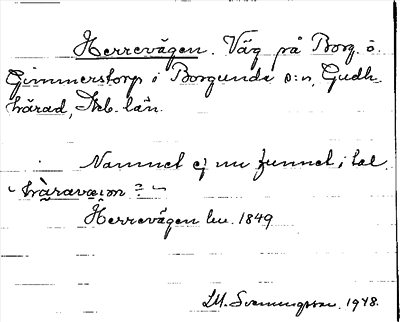 Herrevägen. Väg på Borg. ö.
Gimmerstorp i Borgunda s:n, Gudh.
härad, Skb. län.
Namnet ej nu funnet i tal.
Herrevägen lm. 1849
1948.